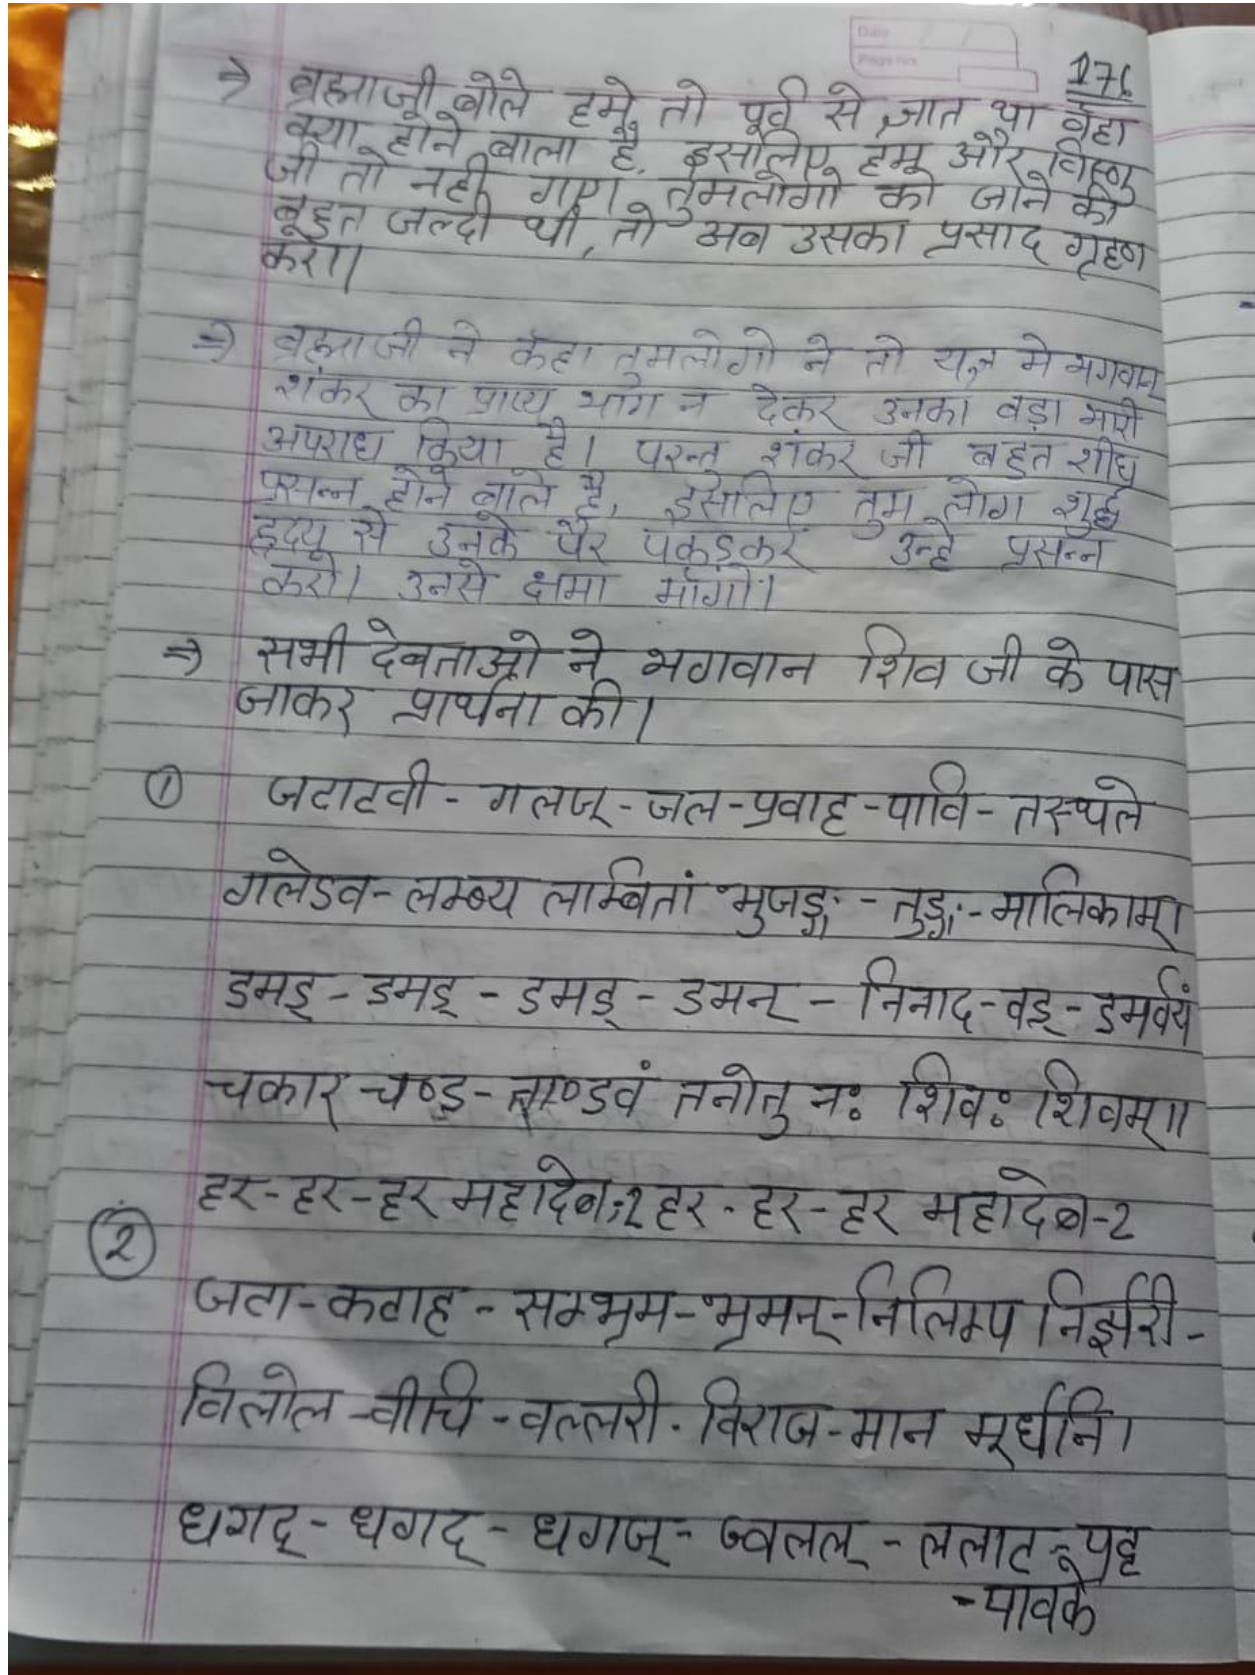 Date
Page no.
176
⇒ ब्रह्माजी बोले हमे तो पूर्व से ज्ञात था वहा
क्या होने बाला है, इसलिए हम और विष्णु
जी तो नही गए, तुमलोगो को जाने की
बहुत जल्दी थी, तो अब उसका प्रसाद गृहण
करो।
⇒ ब्रह्माजी ने कहा तुमलोगो ने तो यज्ञ मे भगवान्
शंकर का प्राप्य भाग न देकर उनका बड़ा भारी
अपराध किया है। परन्तु शंकर जी बहुत शीघ्र
प्रसन्न होने बाले है, इसलिए तुम लोग शुद्ध
हृदय से उनके पैर पकड़कर उन्हे प्रसन्न
करो। उनसे क्षमा माँगो।
⇒ सभी देबताओ ने भगवान शिव जी के पास
जाकर प्रार्थना की।
① जटाटवी - गलज् - जल - प्रवाह - पावि - तस्थले
गलेडव - लम्ब्य लाम्बितां भुजङ्ग - तुङ्ग - मालिकाम्।
डमड् - डमड् - डमड् - डमन् - निनाद - वड् - डमर्वयं
चकार चण्ड - ताण्डवं तनोतु नः शिवः शिवम्॥
हर - हर - हर महादेब:2 हर - हर - हर महादेब - 2
② जटा - कटाह - सम्भ्रम - भ्रमन् - निलिम्प निर्झरी -
विलोल - वीचि - वल्लरी - विराज - मान मूर्धनि।
धगद् - धगद् - धगज् - ज्वलल् - ललाट - पट्ट
- पावके